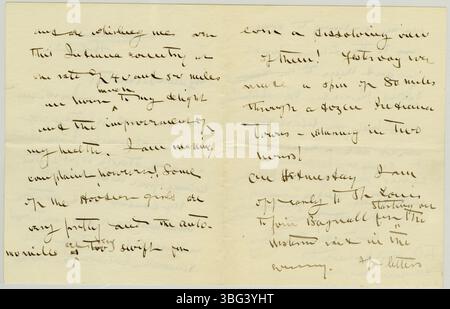 and are whisking me over
this Indiana country at
the rate of 40 and 50 miles
an hour much to my delight
and the improvement of
my health. I am making
complaint however! Some
of the Hoosier girls are
very pretty and the auto-
mobile as too swift for
even a dissolving view
of them! Yesterday we
made a spin of 80 miles
through a dozen Indiana
towns - returning in two
hours!
On Wednesday I am
off early to St. Louis
to join Bagnall for the starting on
western view in the
evening. The letters
alamy
Image ID: 2BG3YHT
www.alamy.com